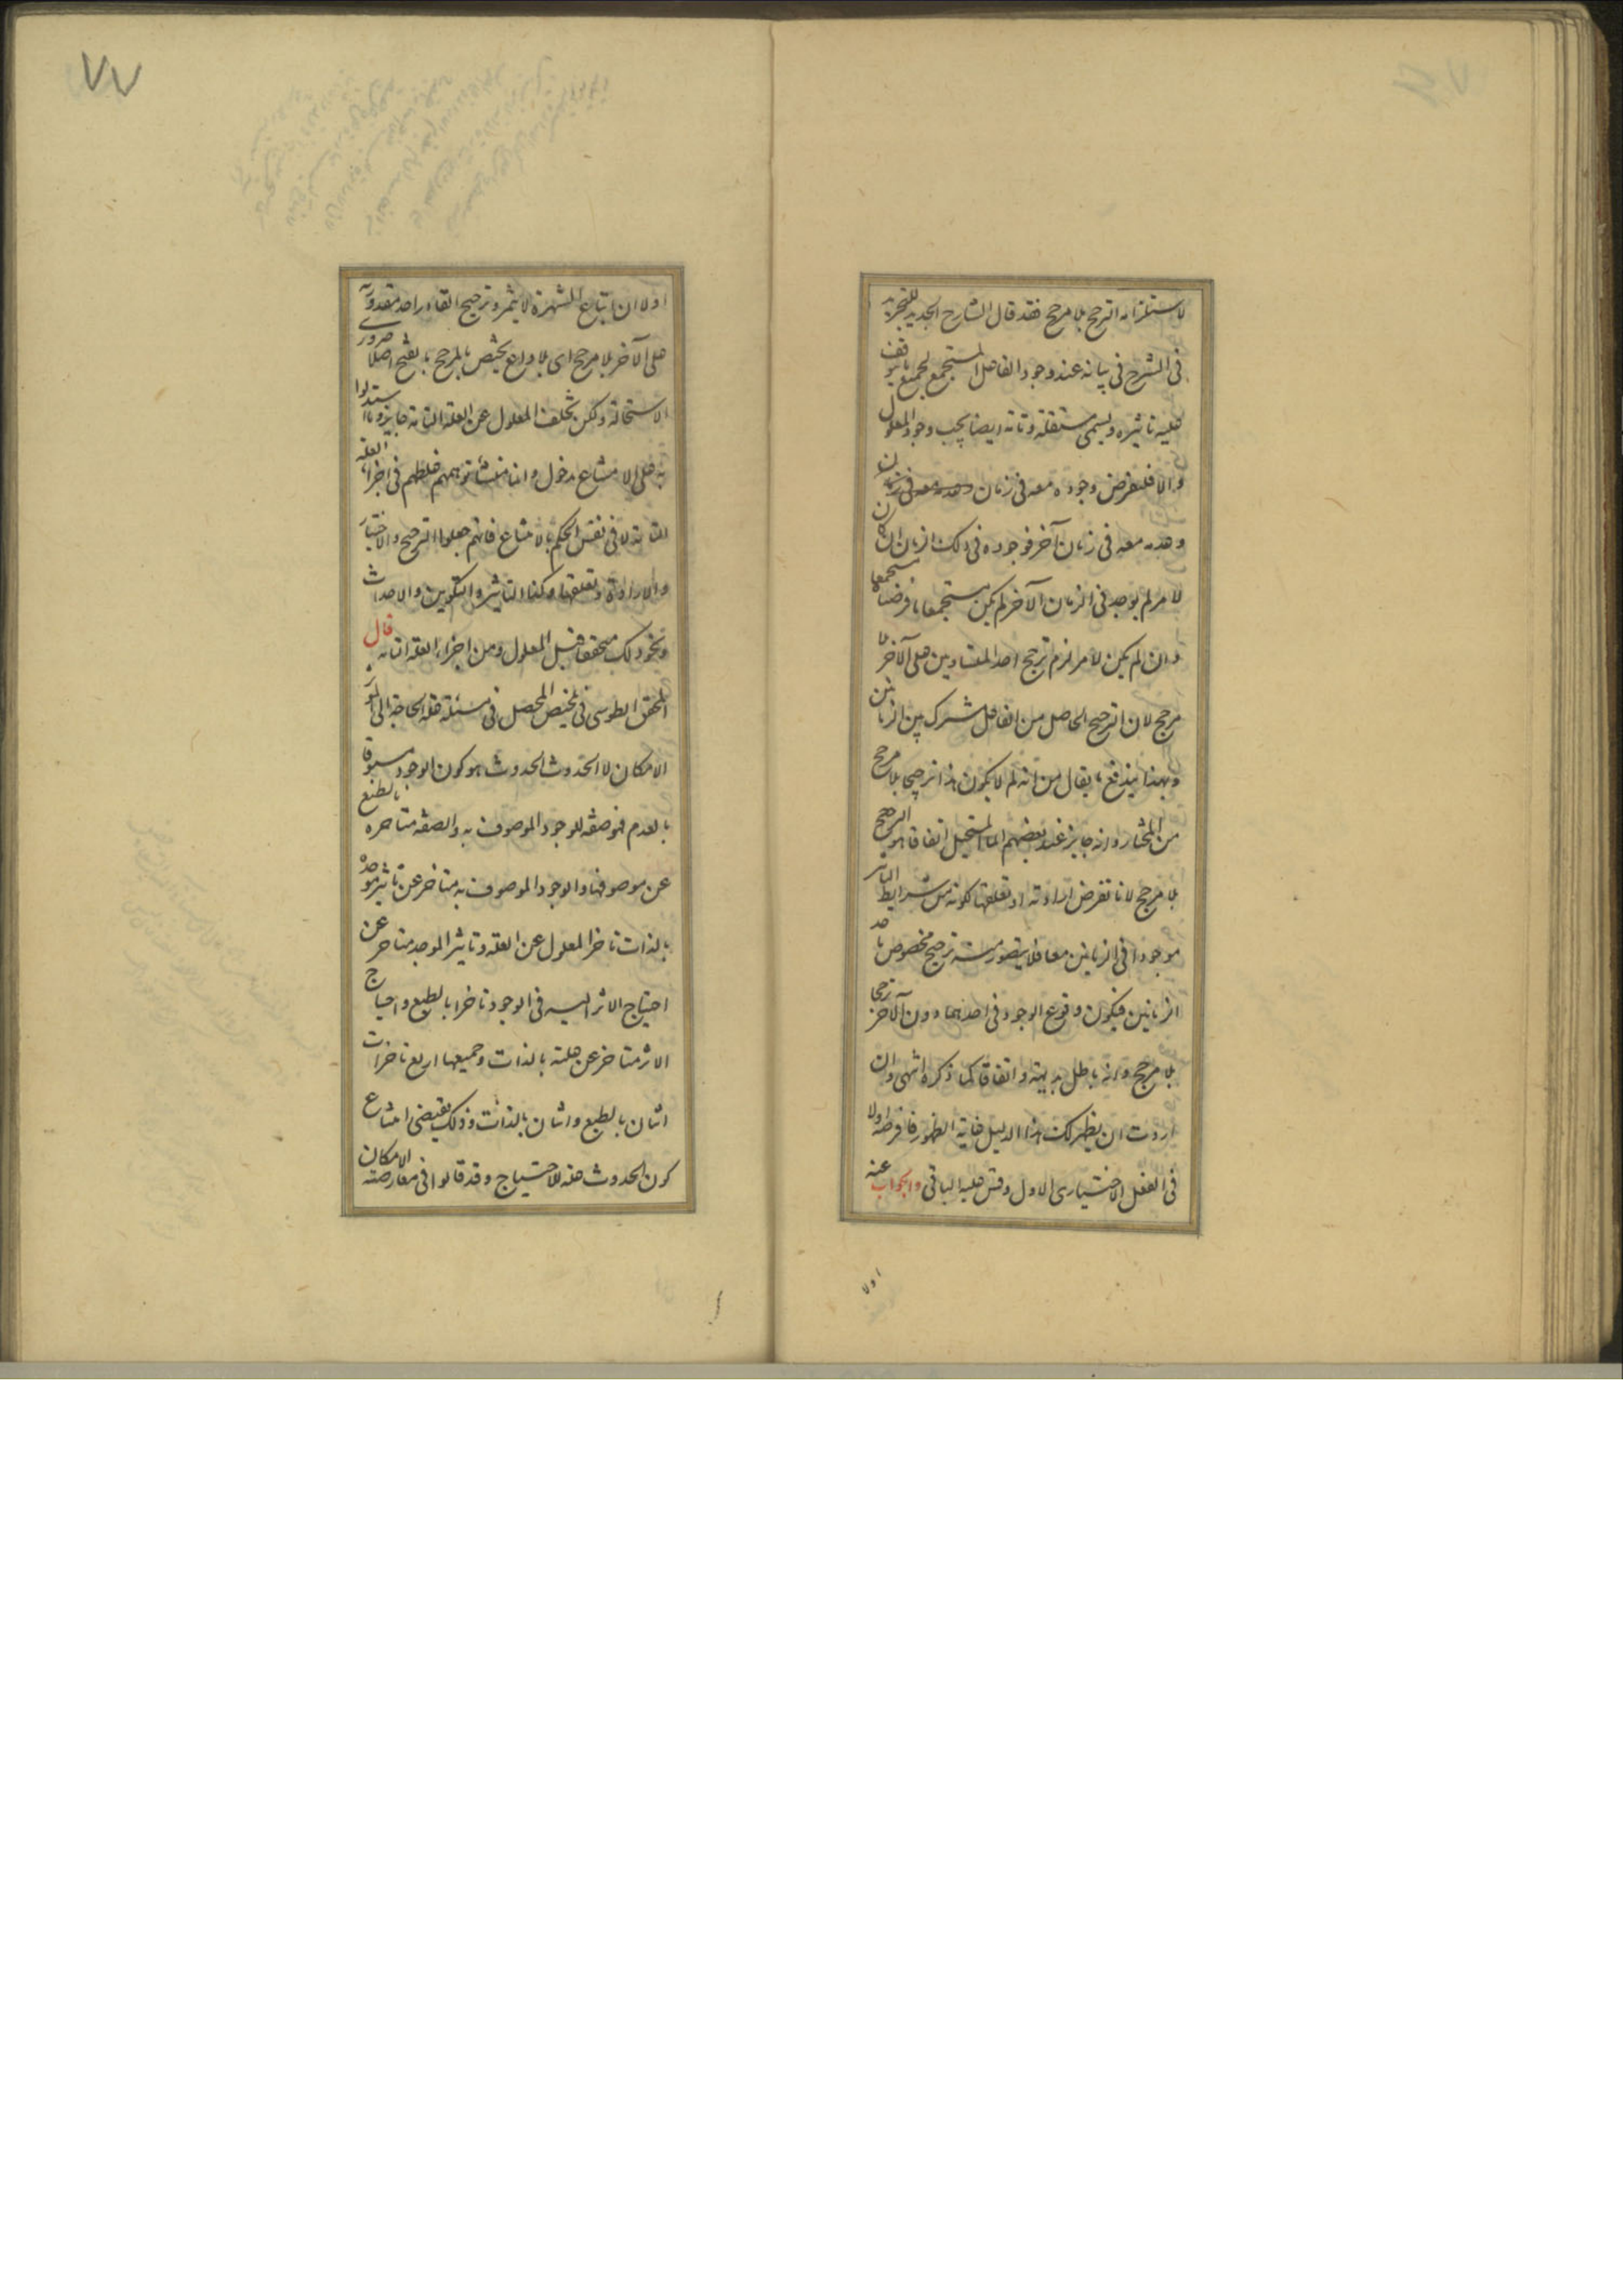 لاستلزامه الترجح بلا مرجح فقد قال الشارح الجديد للتجريد
فى الشرح فى بيانه عند وجود الفاعل المستجمع لجميع ما يتوقف
عليه تاثيره ويسمى مستقلة وتامة ايضا يجب وجود المعلول
والا فلنفرض وجوده معه فى زمان
وعدمه معه فى زمان آخر فوجوده فى ذلك الزمان ان كان
لامر لم يوجد فى الزمان الآخر لم يكن مستجمعا ما فرضناه مستجمعا
وان لم يكن لامر لزم ترجح احد المتساويين على الآخر بلا
مرجح لان الترجيح الحاصل من الفاعل مشترك بين الزمانين
وبهذا يندفع ما يقال من انه لم لا يكون هذا ترجيحا بلا مرجح
من المختار وانه جايز عند بعضهم انما المستحيل اتفاقا هو الترجح
بلا مرجح لانا نفرض ارادته او تعلقها لكونه من شرايط التاثير
موجودا فى الزمانين معا فلا يتصور منه ترجيح مخصوص باحد
الزمانين فيكون وقوع الوجود فى احدهما دون الآخر ترجحا
بلا مرجح وانه باطل بديهة واتفاقا كما ذكره انتهى وان
اردت ان يظهر لك هذا الدليل غاية الظهور فافرضه اولا
فى الفعل الاختيارى الاول وقس عليه الباقى والجواب عنه
اولا
٧٧
اولا ان اتباع الشهرة لا يثمر وترجيح القادر احد مقدوريه
على الآخر بلا مرجح اى بلا داع يختص بالمرجح بالفتح اصلا ضرورى
الاستحالة ولكن تخلف المعلول عن العلة التامة جايز وما استدلوا
به على الامتناع مدخول وانما منشأ توهمهم غلطهم فى اجزاء العلة
التامة لا فى نفس الحكم بالامتناع فانهم جعلوا الترجيح والاختيار
والارادة وتعلقها وكذا التاثير والتكوين والاحداث
ونحو ذلك متحققا قبل المعلول ومن اجزاء العلة التامة قال
المحقق الطوسى فى تلخيص المحصل فى مسئلة علة الحاجة الى المؤثر
الامكان لا الحدوث الحدوث هو كون الوجود مسبوقا
بالعدم فهو صفة للوجود الموصوف به والصفة متاخره بالطبع
عن موصوفها والوجود الموصوف به متاخر عن تاثير موجده
بالذات تاخر المعلول عن العلة وتاثير الموجد متاخر عن
احتياج الاثر اليه فى الوجود تاخرا بالطبع واحتياج
الاثر متاخر عن علته بالذات وجميعها اربع تاخرات
اثنان بالطبع واثنان بالذات وذلك يقتضى امتناع
كون الحدوث علة للاحتياج وقد قالوا فى معارضته الامكان